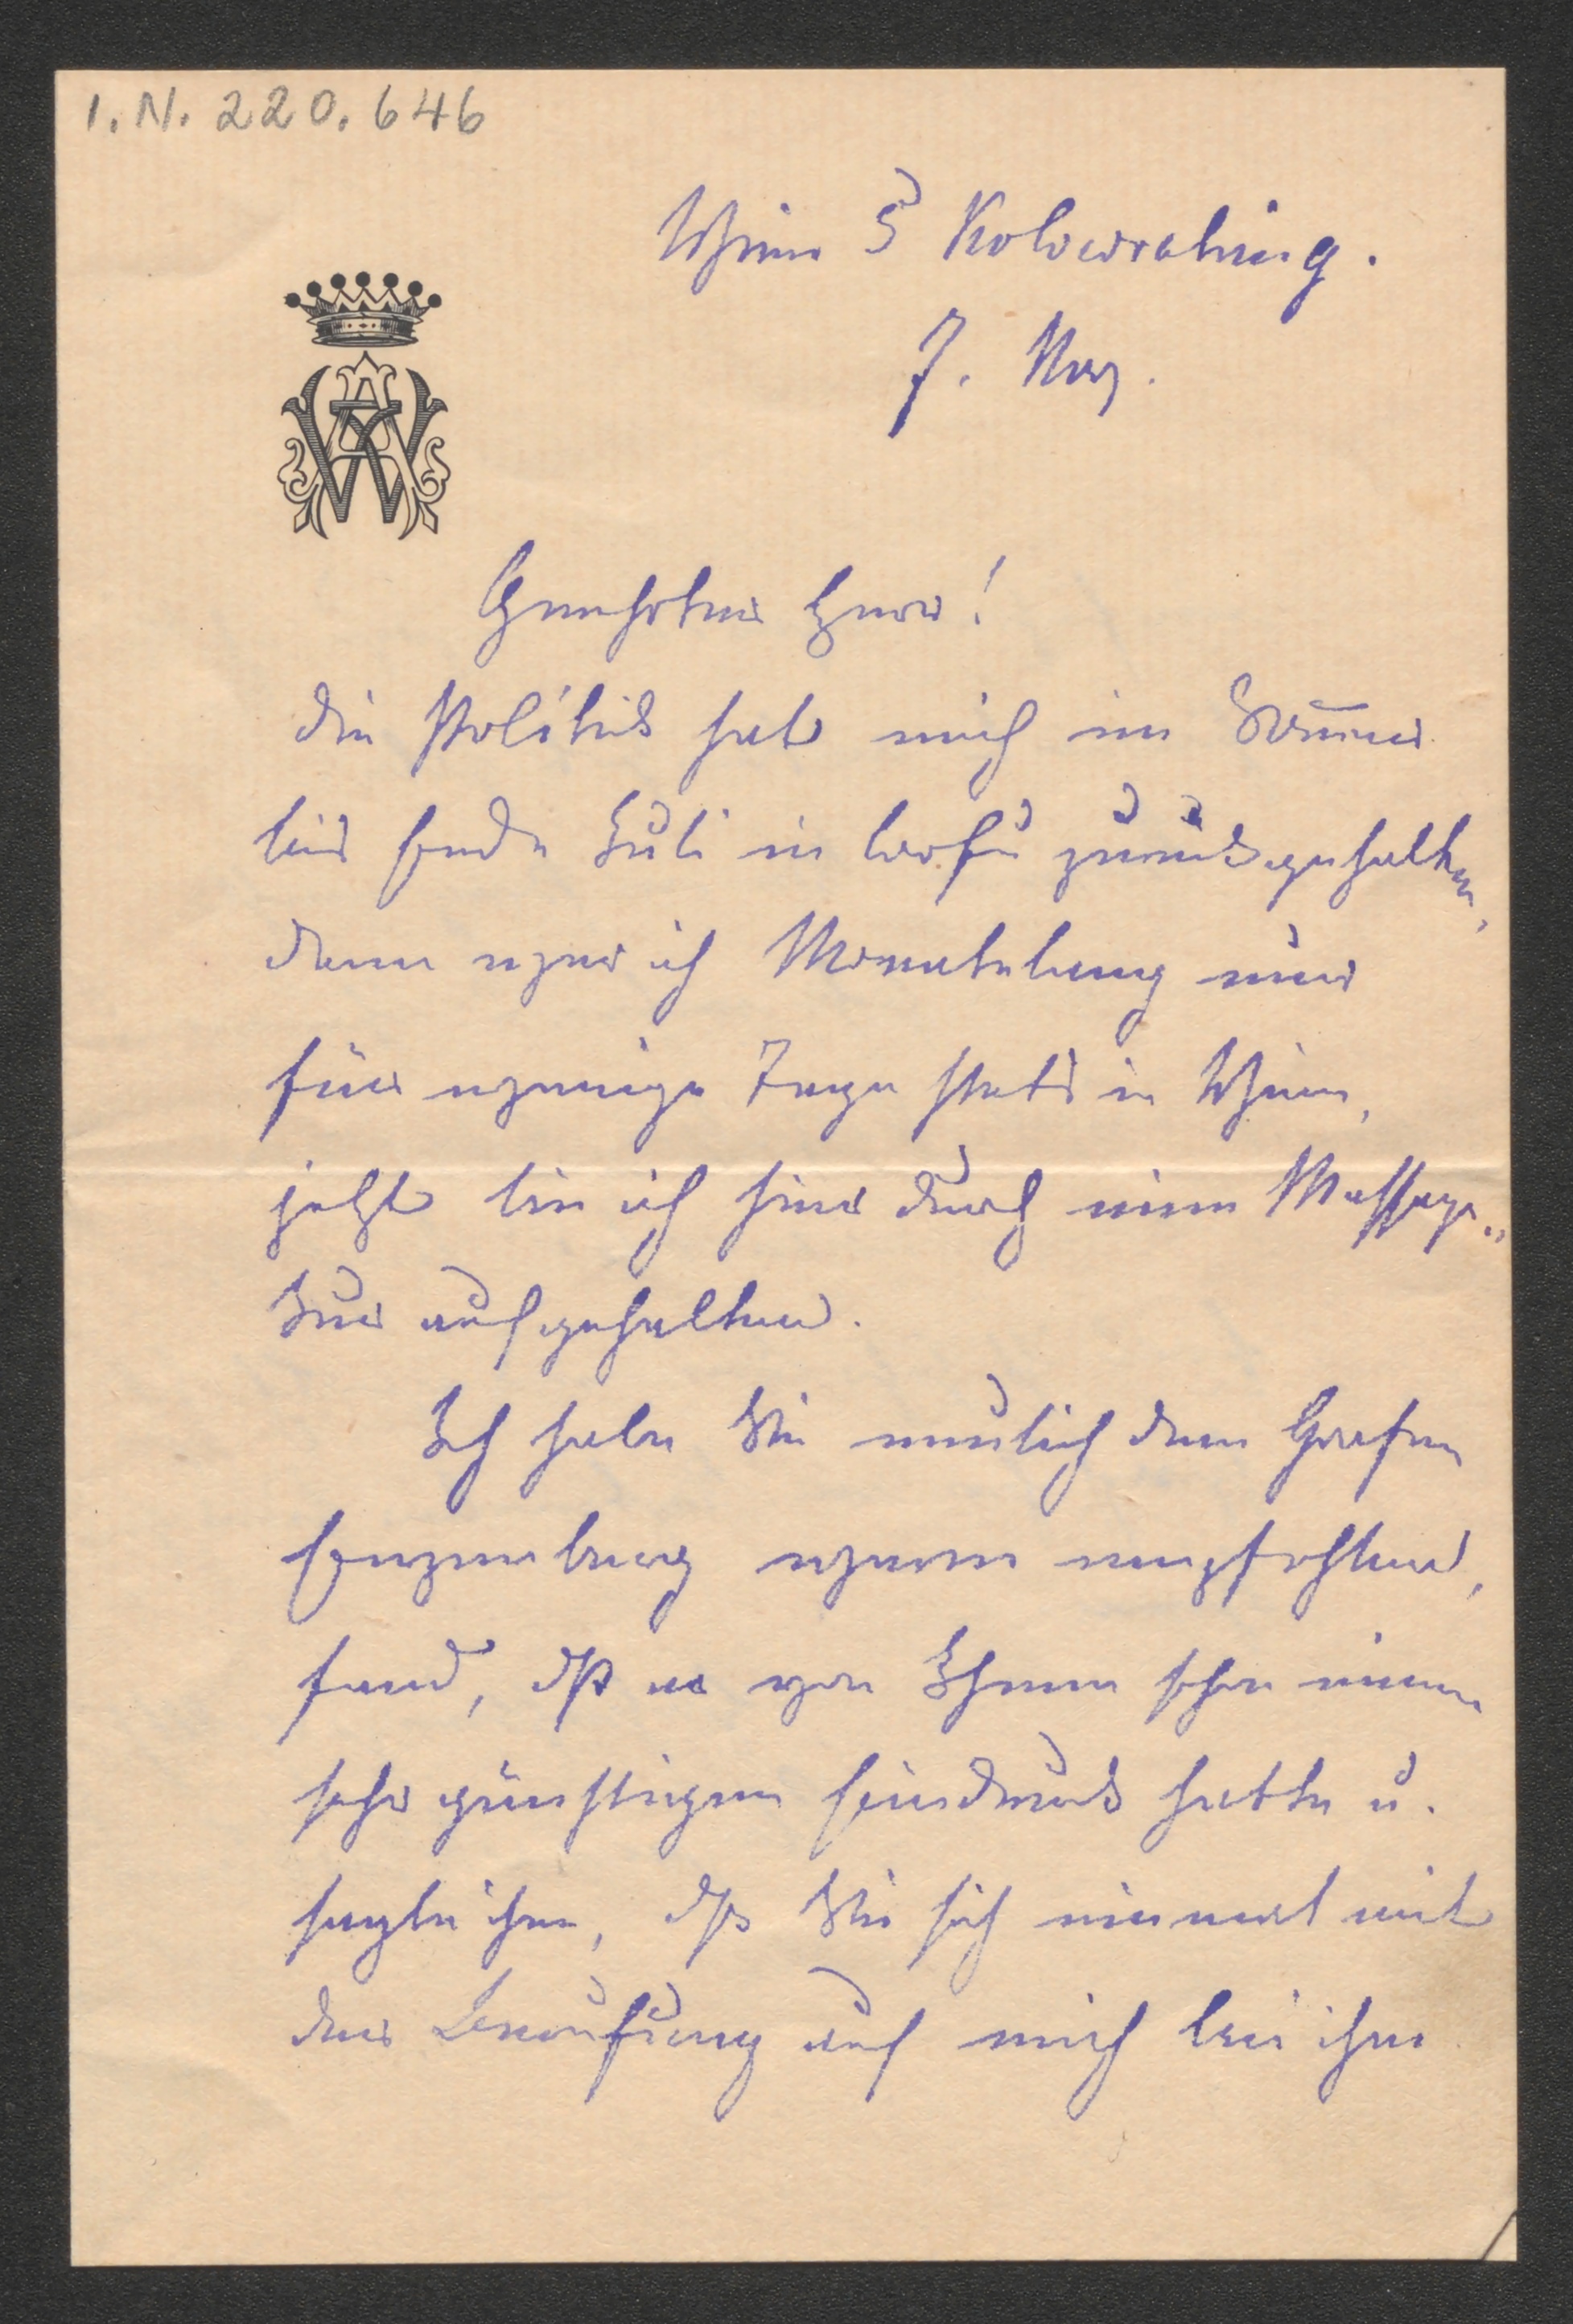 I.N. 220.646
Wien 5 Kolowratring.
7. Nov.
AW
Geehrter Herr!
die Politik hat mich im Som̄er
bis Ende Juli in Corfu zurückgehalten,
dann war ich Monatelang nur
für wenige Tage stets in Wien,
jetzt bin ich hier durch eine Massage-
kur aufgehalten.
Ich habe Sie neulich dem Grafen
Enzenberg warm empfohlen,
fand, dß er von Ihnen schon einen
sehr günstigen Eindruck hatte u.
sagte ihm, dß Sie sich einmal mit
der Berufung auf mich bei ihm